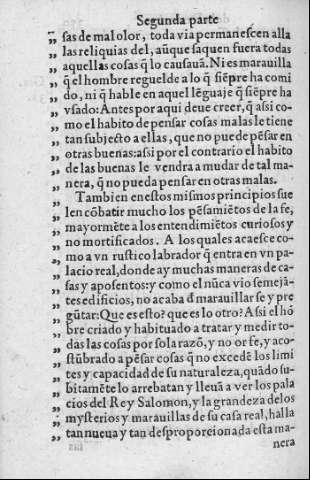 Segunda parte
„ sas de mal olor, toda via permanescen alla
„ las reliquias del, aũque saquen fuera todas
„ aquellas cosas q̃ lo causauã. Ni es marauilla
„ q̃ el hombre reguelde a lo q̃ siẽpre ha comi
„ do, ni q̃ hable en aquel lẽguaje q̃ siẽpre ha
„ vsado: Antes por aqui deue creer, q̃ assi co-
„ mo el habito de pensar cosas malas le tiene
„ tan subjecto a ellas, que no puede pẽsar en
„ otras buenas: assi por el contrario el habito
„ de las buenas le vendra a mudar de tal ma-
„ nera, q̃ no pueda pensar en otras malas.
„ Tambien en estos mismos principios sue
„ len cõbatir mucho los pẽsamiẽtos de la fe,
„ mayormẽte a los entendimiẽtos curiosos y
„ no mortificados. A los quales acaesce co-
„ mo a vn rustico labrador q̃ entra en vn pa-
„ lacio real, donde ay muchas maneras de ca-
„ sas y aposentos: y como el nũca vio semejã-
„ tes edificios, no acaba d̃ marauillar se y pre
„ gũtar: Que es esto? que es lo otro? Assi el hõ
„ bre criado y habituado a tratar y medir to-
„ das las cosas por sola razõ, y no or fe, y aco-
„ stũbrado a pẽsar cosas q̃ no excedẽ los limi
„ tes y capacidad de su naturaleza, quãdo su-
„ bitamẽte lo arrebatan y lleuã a ver los pala
„ cios del Rey Salomon, y la grandeza delos
„ mysterios y marauillas de su casa real, halla
„ tan nueua y tan desproporcionada esta ma-
nera